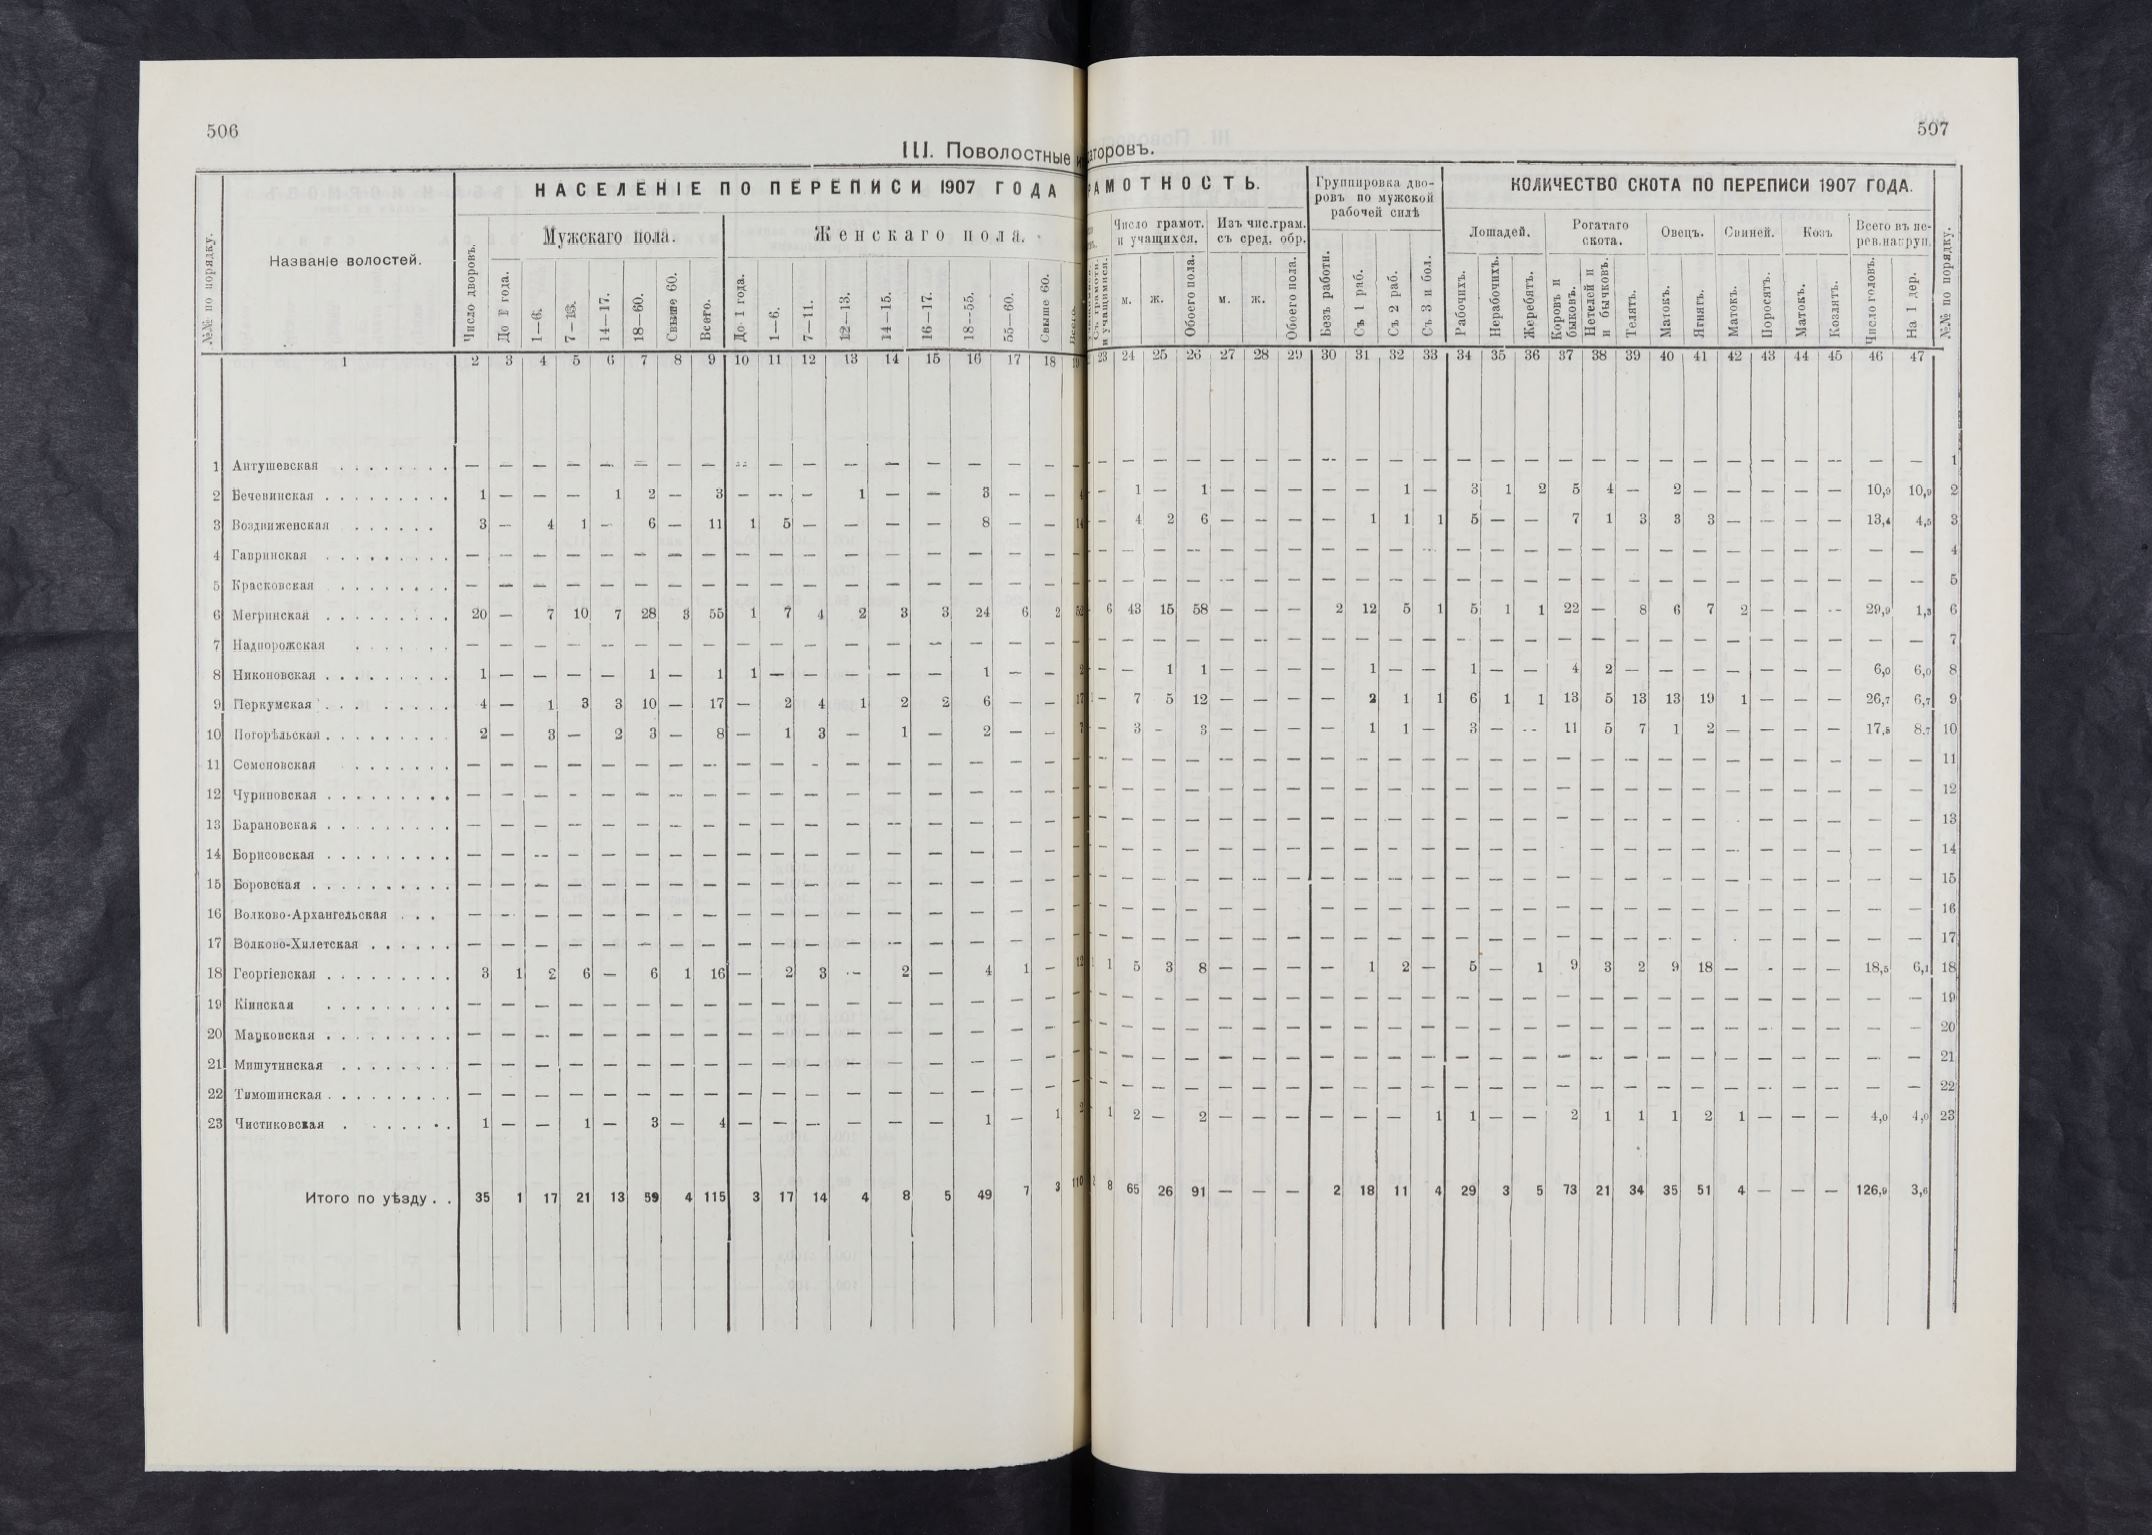 506
507
III. Поволостные и
аторовъ.
НАСЕЛЕНІЕ ПО ПЕРЕПИСИ 1907 ГОДА
АМОТНОСТЬ.
Группировка дво-
ровъ по мужской
рабочей силѣ
КОЛИЧЕСТВО СКОТА ПО ПЕРЕПИСИ 1907 ГОДА.
№№ по порядку.
Названіе волостей.
Число дворовъ.
Мужскаго пола.
Женскаго пола.
Число грамот.
и учащихся.
Изъ чис.грам.
съ сред. обр.
Лошадей.
Рогатаго
скота.
Овецъ.
Свиней.
Козъ
Всего въ пе-
рев.на груп.
№№ по порядку.
До 1 года.
1—6.
7—13.
14—17.
18—60.
Свыше 60.
Всего.
До 1 года.
1—6.
7—11.
12—13.
14—15.
16—17.
18—55.
55—60.
Свыше 60.
Всего.
и учащимися.
м.
ж.
Обоего пола.
м.
ж.
Обоего пола.
Безъ работн.
Съ 1 раб.
Съ 2 раб.
Съ 3 и бол.
Рабочихъ.
Нерабочихъ.
Жеребятъ.
Коровъ и
быковъ.
Нетелей и
и бычковъ.
Телятъ.
Матокъ.
Ягнятъ.
Матокъ.
Поросятъ.
Матокъ.
Козлятъ.
Число головъ.
На 1 дер.
1 2 3 4 5 6 7 8 9 10 11 12 13 14 15 16 17 18 23 24 25 26 27 28 29 30 31 32 33 34 35 36 37 38 39 40 41 42 43 44 45 46 47
1 Антушевская . . . . . . . . — — — — — — — — — — — — — — — — — — — — — — — — — — — — — — — — — — — — — — — — — — — 1
2 Бечевинская . . . . . . . . . 1 — — — 1 2 — 3 — — — 1 — — 3 — — 4 — 1 — 1 — — — — — 1 — 3 1 2 5 4 — 2 — — — — — 10,9 10,9 2
3 Воздвиженская . . . . . . 3 — 4 1 — 6 — 11 1 5 — — — — 8 — — 14 — 4 2 6 — — — — 1 1 1 5 — — 7 1 3 3 3 — — — — 13,4 4,5 3
4 Гавринская . . . . . . . . . — — — — — — — — — — — — — — — — — — — — — — — — — — — — — — — — — — — — — — — — — — — 4
5 Красковская . . . . . . . . — — — — — — — — — — — — — — — — — — — — — — — — — — — — — — — — — — — — — — — — — — — 5
6 Мегринская . . . . . . . . . 20 — 7 10 7 28 3 55 1 7 4 2 3 3 24 6 2 52 6 43 15 58 — — — 2 12 5 1 5 1 1 22 — 8 6 7 2 — — — 29,9 1,5 6
7 Надпорожская . . . . . . — — — — — — — — — — — — — — — — — — — — — — — — — — — — — — — — — — — — — — — — — — — 7
8 Никоновская . . . . . . . . . 1 — — — — 1 — 1 1 — — — — — 1 — — 2 — — 1 1 — — — — 1 — — 1 — — 4 2 — — — — — — — 6,0 6,0 8
9 Перкумская . . . . . . . . . 4 — 1 3 3 10 — 17 — 2 4 1 2 2 6 — — 17 — 7 5 12 — — — — 2 1 1 6 1 1 13 5 13 13 19 1 — — — 26,7 6,7 9
10 Погорѣльская . . . . . . . . . 2 — 3 — 2 3 — 8 — 1 3 — 1 — 2 — — 7 — 3 — 3 — — — — 1 1 — 3 — — 11 5 7 1 2 — — — — 17,5 8.7 10
11 Семеновская . . . . . . . — — — — — — — — — — — — — — — — — — — — — — — — — — — — — — — — — — — — — — — — — — — 11
12 Чуриновская . . . . . . . . . — — — — — — — — — — — — — — — — — — — — — — — — — — — — — — — — — — — — — — — — — — — 12
13 Барановская . . . . . . . . . — — — — — — — — — — — — — — — — — — — — — — — — — — — — — — — — — — — — — — — — — — — 13
14 Борисовская . . . . . . . . . — — — — — — — — — — — — — — — — — — — — — — — — — — — — — — — — — — — — — — — — — — — 14
15 Боровская . . . . . . . . . . — — — — — — — — — — — — — — — — — — — — — — — — — — — — — — — — — — — — — — — — — — — 15
16 Волково-Архангельская . . . — — — — — — — — — — — — — — — — — — — — — — — — — — — — — — — — — — — — — — — — — — — 16
17 Волково-Хилетская . . . . . . — — — — — — — — — — — — — — — — — — — — — — — — — — — — — — — — — — — — — — — — — — — 17
18 Георгіевская . . . . . . . . . 3 1 2 6 — 6 1 16 — 2 3 — 2 — 4 1 — 12 1 5 3 8 — — — — 1 2 — 5 — 1 9 3 2 9 18 — — — — 18,5 6,1 18
19 Кіинская . . . . . . . . . — — — — — — — — — — — — — — — — — — — — — — — — — — — — — — — — — — — — — — — — — — — 19
20 Марковская . . . . . . . . . — — — — — — — — — — — — — — — — — — — — — — — — — — — — — — — — — — — — — — — — — — — 20
21 Мишутинская . . . . . . . . — — — — — — — — — — — — — — — — — — — — — — — — — — — — — — — — — — — — — — — — — — — 21
22 Тимошинская . . . . . . . . . — — — — — — — — — — — — — — — — — — — — — — — — — — — — — — — — — — — — — — — — — — — 22
23 Чистиковская . . . . . . . 1 — — 1 — 3 — 4 — — — — — — 1 — 1 2 1 2 — 2 — — — — — — 1 1 — — 2 1 1 1 2 1 — — — 4,0 4,0 23
Итого по уѣзду . . 35 1 17 21 13 59 4 115 3 17 14 4 8 5 49 7 3 110 8 65 26 91 — — — 2 18 11 4 29 3 5 73 21 34 35 51 4 — — — 126,9 3,6